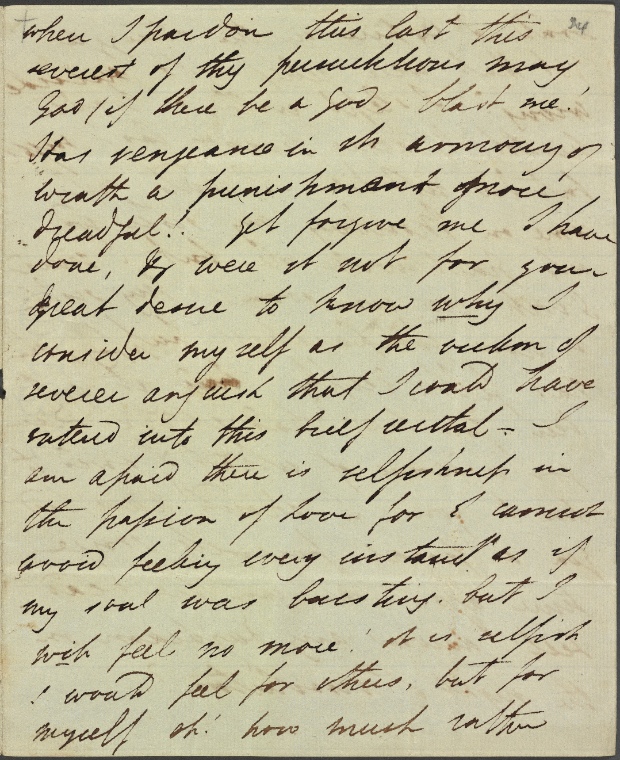 34
when I pardon this last this
severest of thy persecutions may
God (if there be a God) blast me!
Has vengeance in its armoury of
wrath a punishment more
dreadful! Yet forgive me I have
done, & were it not for your
great desire to know why I
consider myself as the victim of
severer anguish that I could have
entered into this brief recital – I
am afraid there is selfishness in
the passion of love for I cannot
avoid feeling every instant as if
my soul was bursting. but I
will feel no more! it is selfish
I would feel for others, but for
myself oh! how much rather